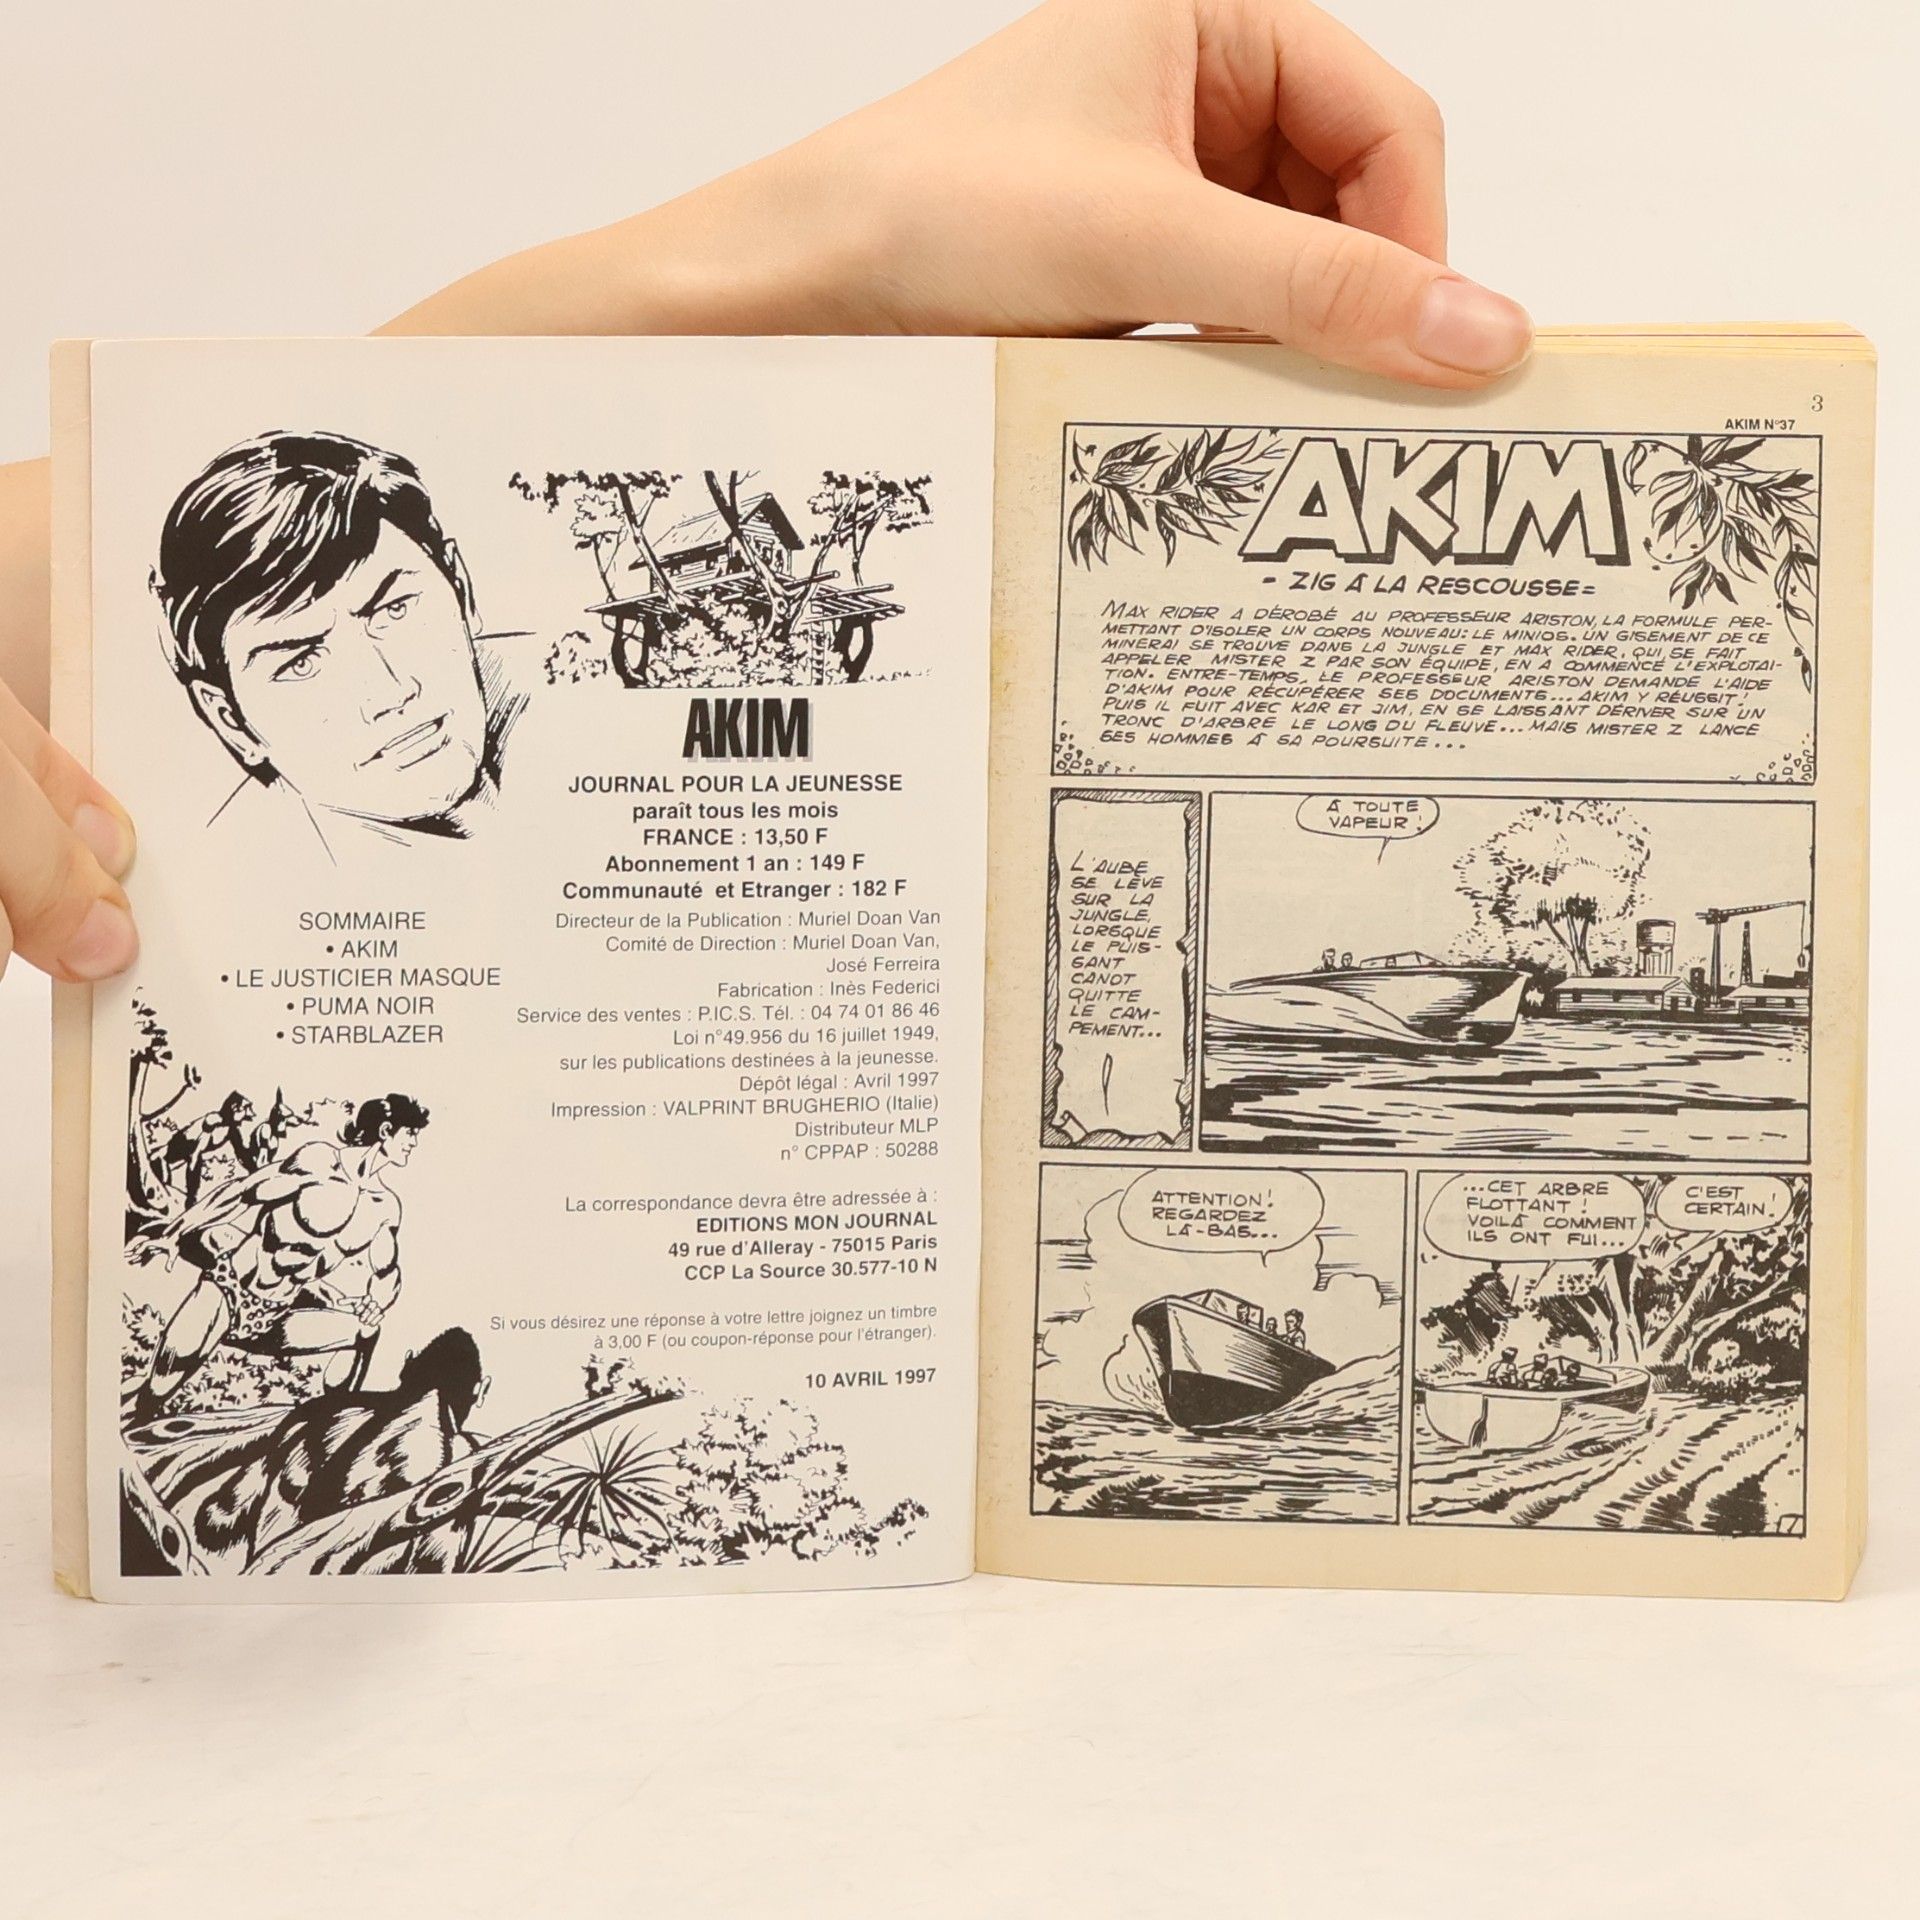 SOMMAIRE
• AKIM
• LE JUSTICIER MASQUE
• PUMA NOIR
• STARBLAZER
AKIM
JOURNAL POUR LA JEUNESSE
paraît tous les mois
FRANCE : 13,50 F
Abonnement 1 an : 149 F
Communauté et Etranger : 182 F
Directeur de la Publication : Muriel Doan Van
Comité de Direction : Muriel Doan Van,
José Ferreira
Fabrication : Inès Federici
Service des ventes : P.IC.S. Tél. : 04 74 01 86 46
Loi n°49.956 du 16 juillet 1949,
sur les publications destinées à la jeunesse.
Dépôt légal : Avril 1997
Impression : VALPRINT BRUGHERIO (Italie)
Distributeur MLP
n° CPPAP : 50288
La correspondance devra être adressée à :
EDITIONS MON JOURNAL
49 rue d'Alleray - 75015 Paris
CCP La Source 30.577-10 N
Si vous désirez une réponse à votre lettre joignez un timbre
à 3,00 F (ou coupon-réponse pour l'étranger).
10 AVRIL 1997
3
AKIM N°37
AKIM
- ZIG À LA RESCOUSSE =
MAX RIDER A DÉROBÉ AU PROFESSEUR ARISTON, LA FORMULE PER-
METTANT D'ISOLER UN CORPS NOUVEAU: LE MINIOS. UN GISEMENT DE CE
MINERAI SE TROUVE DANS LA JUNGLE ET MAX RIDER, QUI SE FAIT
APPELER MISTER Z PAR SON ÉQUIPE, EN A COMMENCÉ L'EXPLOTAI-
TION. ENTRE-TEMPS, LE PROFESSEUR ARISTON DEMANDE L'AIDE
D'AKIM POUR RÉCUPÉRER SES DOCUMENTS... AKIM Y RÉUSSIT!
PUIS IL FUIT AVEC KAR ET JIM, EN SE LAISSANT DÉRIVER SUR UN
TRONC D'ARBRE LE LONG DU FLEUVE... MAIS MISTER Z LANCE
SES HOMMES À SA POURSUITE...
L'AUBE
SE LÈVE
SUR LA
JUNGLE,
LORSQUE
LE PUIS-
SANT
CANOT
QUITTE
LE CAM-
PEMENT...
À TOUTE
VAPEUR!
ATTENTION!
REGARDEZ
LÀ-BAS...
...CET ARBRE
FLOTTANT!
VOILÀ COMMENT
ILS ONT FUI...
C'EST
CERTAIN!